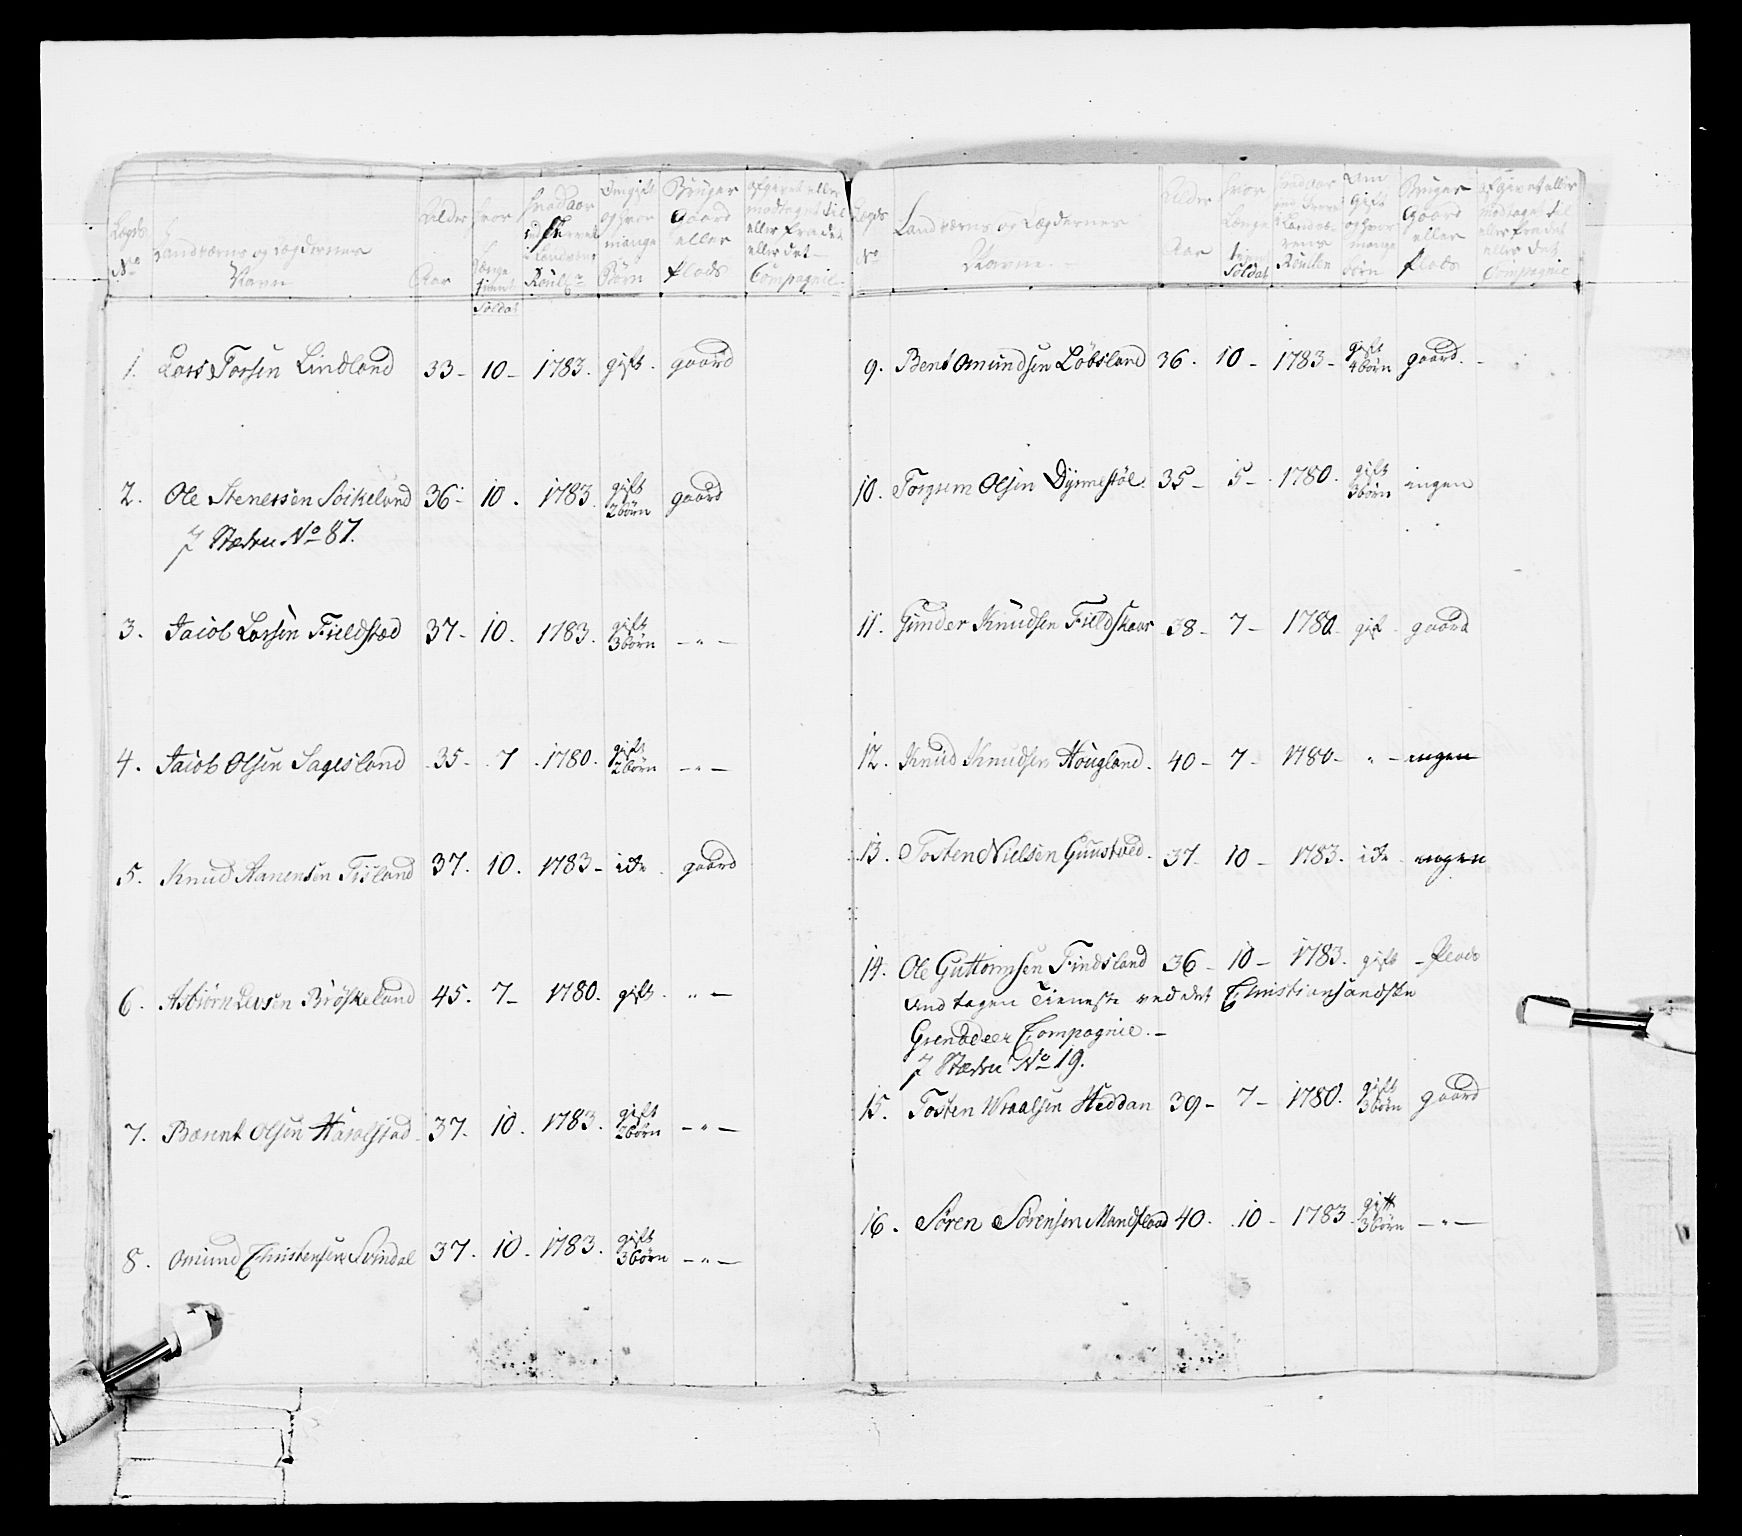 Lægds No
Landværns og Lægdernes Navn
Alder Aar
hvor længe tient Soldat
hvad Aar indskrevet i Landværns Roull
Om gift og hvor mange Børn
Bruger Gaard eller Plads
afgivet eller modtaget til eller fra det eller det Compagnie
1. Lars Torsen Lindland 33 - 10 - 1783. gift. gaard
2. Ole Stenersen Soikeland 36 - 10. 1783. gift 2 børn gaard
J Stæden No 87.
3. Jacob Larsen Fieldstæd 37 - 10. 1783. gift 3 børn - " -
4. Jacob Olsen Sagesland 35 - 7. 1780. gift 2 børn - " -
5. Knud Aanensen Fisland 37. 10. 1783 - icke. gaard
6. Asbiørn Larsen Brøskeland 45. 7 - 1780. gift. " -
7. Barent Olsen Haralstad 37. 10. 1783. gift 2 børn - " -
8. Omund Christensen Svindal 37. 10. 1783. gift 3 børn - " -
Lægds No
Landværns og Lægdernes Navne.
Alder Aar
hvor Længe tient Soldat
hvad aar ind skrevet i Landværens Roullen
Om Gift og hvor mange børn
Bruger Gaard eller Plads
afgivet eller modtaget til eller fra det eller det Compagnie
9. Bent Omundsen Løbsland 36. 10 - 1783 - gift 4 børn gaard. -
10. Torgrem Olsen Dyrmestøl 35 - 5 - 1780. gift 3 børn ingen
11. Gunder Knudsen Fieldskaar 38 - 7 - 1780. gift. gaard
12. Knud Knudsen Hougland. 40 - 7 - 1780 - " - ingen
13. Tosten Nielsen Guustad. 37. 10 - 1783. icke. ingen
14. Ole Guttormsen Findsland 36 - 10 - 1783. gift - Plads
Andtagen Tieneste ved det Christiansandske
Grenadeer Compagnie. -
J Stæden No 19.
15. Tosten Wraalsen Heddan 39 - 7 - 1780. gift 3 børn gaard
16. Søren Sørensen Mandfload 40. 10 - 1783. gift 3 børn - " -